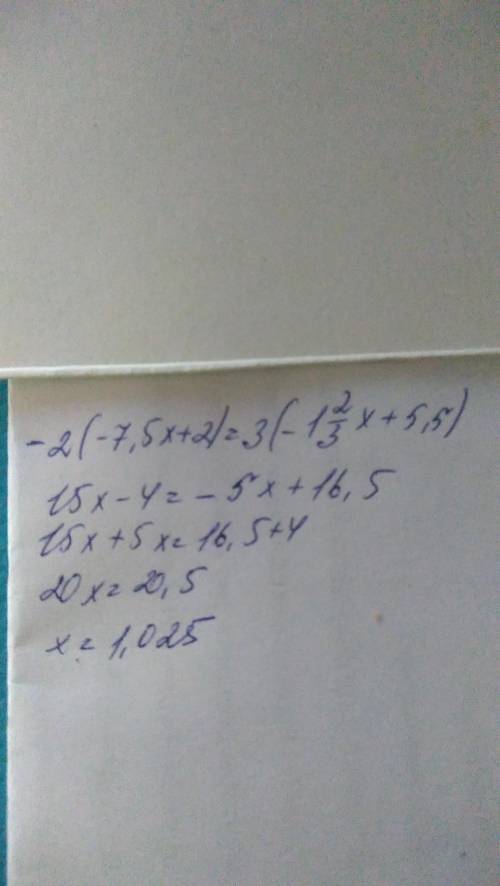 -2(-7,5x+2)=3(-1 2/3 x+5,5)
15x-4=-5x+16,5
15x+5x=16,5+4
20x=20,5
x=1,025